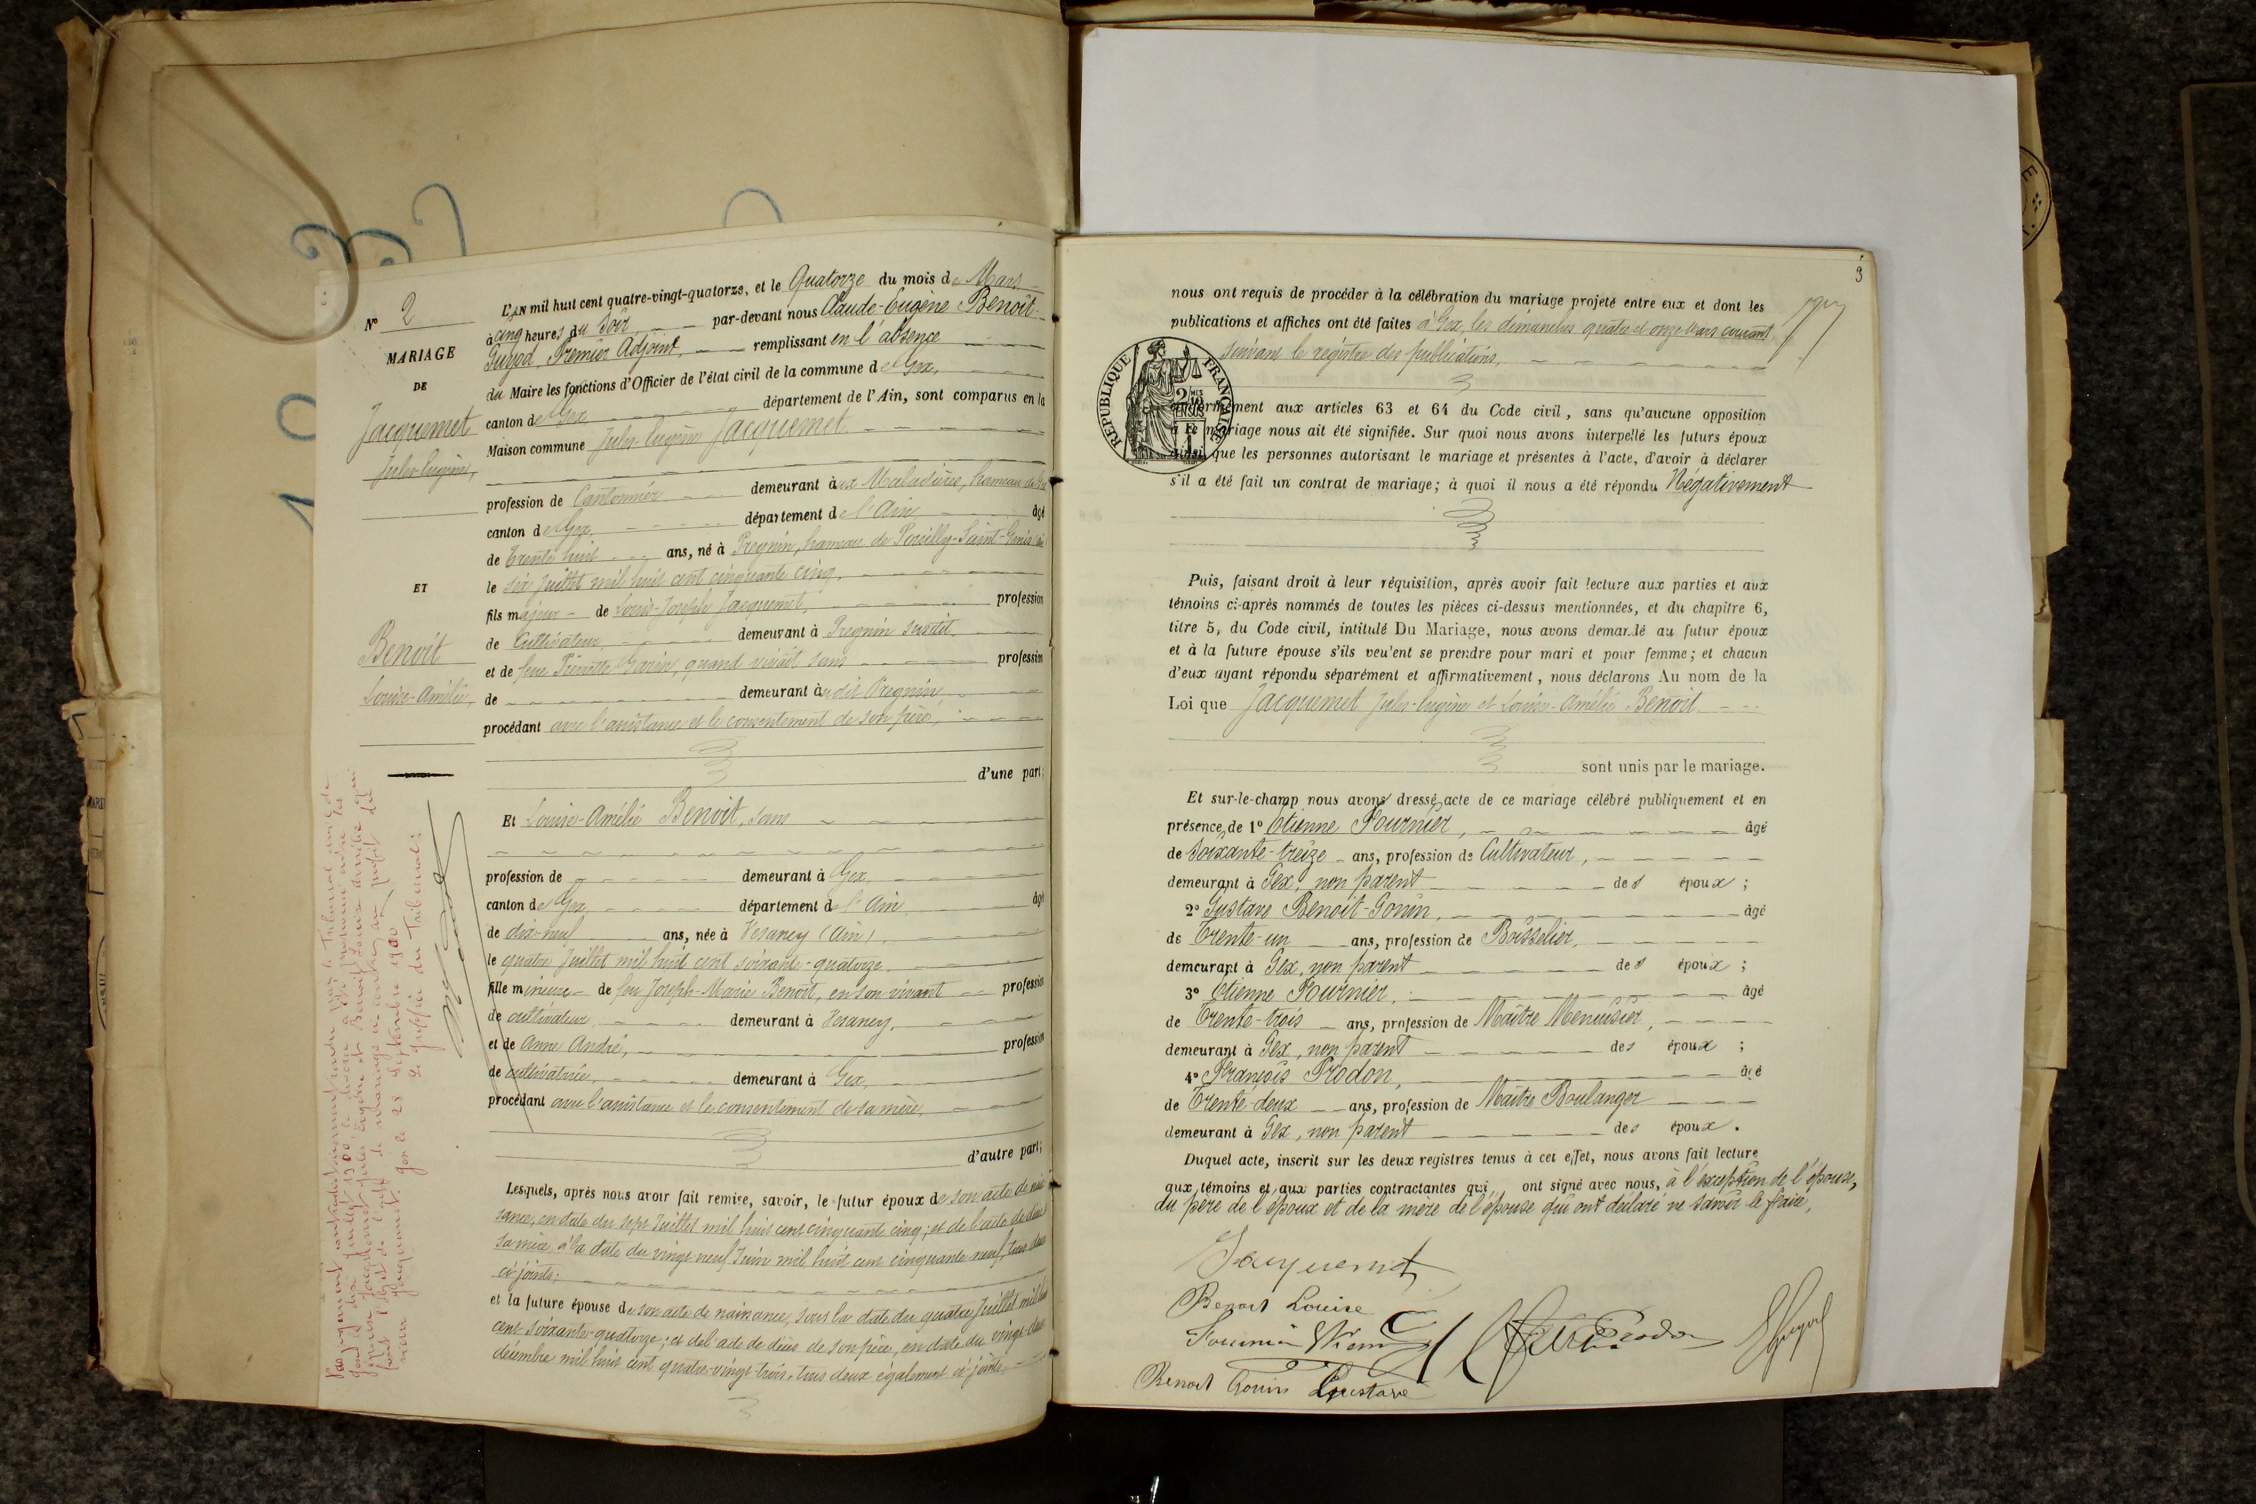 N° 2
MARIAGE
DE
Jacquemet
Jules-Eugène,
ET
Benoit
Louise-Amélie,
L'AN mil huit cent quatre-vingt-quatorze, et le Quatorze du mois de Mars
à cinq heures du Soir par-devant nous Claude-Eugène Benoit-
Guyod, Premier Adjoint, remplissant en l'absence
du Maire les fonctions d'Officier de l'état civil de la commune de Gex,
canton de Gex département de l'Ain, sont comparus en la
Maison commune Jules-Eugène Jacquemet
profession de Cantonnier demeurant aux Maladières, hameau de Gex
canton de Gex, département de l'Ain âgé
de trente huit ans, né à Pregnin, hameau de Pouilly-Saint-Genis
le six Juillet mil huit cent cinquante cinq,
fils majeur de Louis-Joseph Jacquemet, profession
de Cultivateur demeurant à Pregnin susdit,
et de feue Pernette Garin, quand vivait sans profession
de demeurant audit Pregnin,
procédant avec l'assistance et le consentement de son père,
d'une part;
Et Louise-Amélie Benoit, sans
profession de demeurant à Gex,
canton de Gex, département de l'Ain, âgé
de dix-neuf ans, née à Vesancy (Ain),
le quatre Juillet mil huit cent soixante-quatorze,
fille mineure de feu Joseph-Marie Benoit, en son vivant profession
de cultivateur, demeurant à Vesancy,
et de Anne André, profession
de cultivatrice, demeurant à Gex,
procédant avec l'assistance et le consentement de sa mère,
d'autre part;
Lesquels, après nous avoir fait remise, savoir, le futur époux de son acte de nais
sance, en date du sept Juillet mil huit cent cinquante cinq; et de l'acte de décès
sa mère, à la date du vingt neuf Juin mil huit cent cinquante neuf, tous deux
ci-joints;
et la future épouse de son acte de naissance, sous la date du quatre Juillet mil huit
cent soixante-quatorze; et de l'acte de décès de son père, en date du vingt-deux
décembre mil huit cent quatre-vingt-trois, tous deux également ci-joints,
Par jugement contradictoirement rendu par le Tribunal civil de
Gex le dix Juillet 1900, le divorce a été prononcé entre les
époux Jacquemet Jules Eugène et Benoit Louise Amélie qui
font l'objet de l'acte de mariage ci-contre, au profit du
mari Jacquemet. Gex le 28 Septembre 1900
Le greffier du Tribunal:
3
nous ont requis de procéder à la célébration du mariage projeté entre eux et dont les
publications et affiches ont été faites à Gex, les dimanches quatre et onze Mars courant,
suivant le registre des publications,
RÉPUBLIQUE FRANÇAISE
conformément aux articles 63 et 64 du Code civil, sans qu'aucune opposition
à ce mariage nous ait été signifiée. Sur quoi nous avons interpellé les futurs époux
ainsi que les personnes autorisant le mariage et présentes à l'acte, d'avoir à déclarer
s'il a été fait un contrat de mariage; à quoi il nous a été répondu Négativement
Puis, faisant droit à leur réquisition, après avoir fait lecture aux parties et aux
témoins ci-après nommés de toutes les pièces ci-dessus mentionnées, et du chapitre 6,
titre 5, du Code civil, intitulé Du Mariage, nous avons demandé au futur époux
et à la future épouse s'ils veulent se prendre pour mari et pour femme; et chacun
d'eux ayant répondu séparément et affirmativement, nous déclarons Au nom de la
Loi que Jacquemet Jules-Eugène et Louise-Amélie Benoit
sont unis par le mariage.
Et sur-le-champ nous avons dressé acte de ce mariage célébré publiquement et en
présence de 1° Etienne Fournier, âgé
de Soixante-treize ans, profession de Cultivateur,
demeurant à Gex, non parent des époux;
2° Gustave Benoit-Gonin, âgé
de Trente-un ans, profession de Boisselier,
demeurant à Gex, non parent des époux;
3° Etienne Fournier, âgé
de Trente-trois ans, profession de Maître Menuisier,
demeurant à Gex, non parent des époux;
4° François Prodon, âgé
de Trente-deux ans, profession de Maître Boulanger
demeurant à Gex, non parent des époux.
Duquel acte, inscrit sur les deux registres tenus à cet effet, nous avons fait lecture
aux témoins et aux parties contractantes qui ont signé avec nous, à l'exception de l'épouse,
du père de l'époux et de la mère de l'épouse qui ont déclaré ne savoir le faire,
Jacquemet
Benoit Louise
Fournier Etienne Prodon
Benoit Gonin Gustave